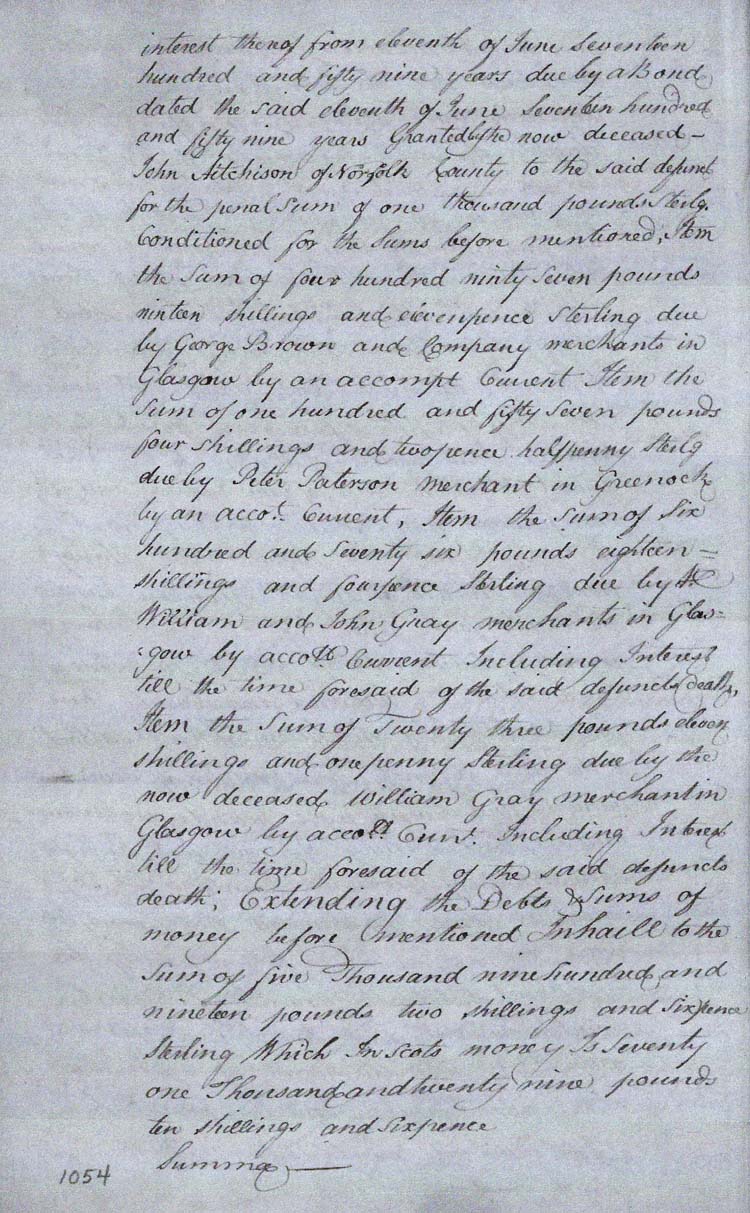 interest thereof from eleventh of June Seventeen
hundred and fifty nine years due by a Bond
dated the said eleventh of June Seventeen hundred
and fifty nine years Granted by the now deceased –
John Aitchison of Norfolk County to the said defunct
for the penal Sum of one thousand pounds Sterlg.
Conditioned for the Sums before mentioned, Item
the Sum of four hundred ninty Seven pounds
ninteen shillings and elevenpence Sterling due
by George Brown and Company merchants in
Glasgow by an accompt Current Item the
Sum of one hundred and fifty Seven pounds
four shillings and twopence halfpenny Sterlg
due by Peter Paterson merchant in Greenock
by an acco.t Current, Item the Sum of Six
hundred and Seventy Six pounds eighteen =
shillings and fourpence Sterling due by
William and John Gray merchants in Glas=
=gow by acco.tt Current Including Interest
till the time foresaid of the said defuncts death,
Item the Sum of Twenty three pounds eleven
shillings and one penny Sterling due by the
now deceased William Gray merchant in
Glasgow by acco.tt Curr.t Including Interest
till the time foresaid of the said defuncts
death; Extending the Debts & Sums of
money before mentioned Inhaill to the
Sum of five Thousand nine hundred and
nineteen pounds two shillings and Sixpence
Sterling Which In Scots money Is Seventy
one Thousand and twenty nine pounds
ten shillings and Sixpence
Summa —
1054